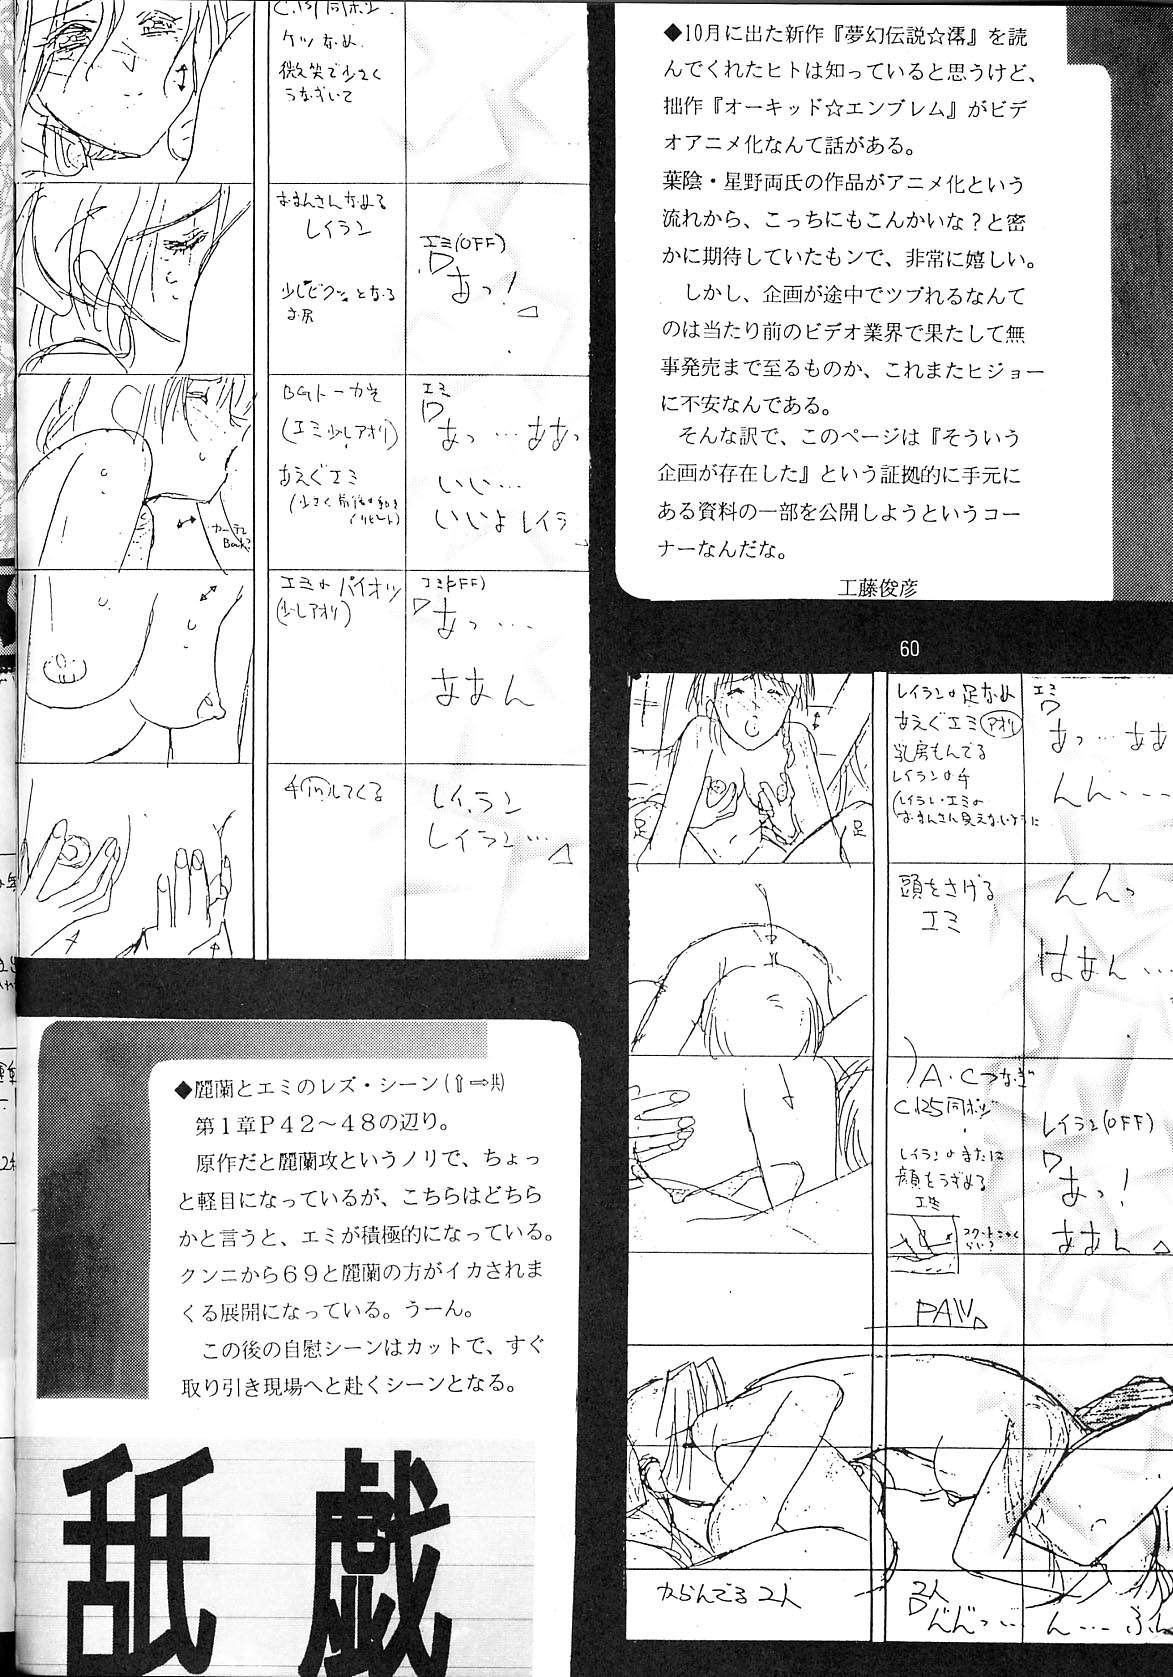 ◆10月に出た新作『夢幻伝説☆澪』を読
んでくれたヒトは知っていると思うけど、
拙作『オーキッド☆エンブレム』がビデ
オアニメ化なんて話がある。
葉陰・星野両氏の作品がアニメ化という
流れから、こっちにもこんかいな？と密
かに期待していたもンで、非常に嬉しい。
しかし、企画が途中でツブれるなんて
のは当たり前のビデオ業界で果たして無
事発売まで至るものか、これまたヒジョー
に不安なんである。
そんな訳で、このページは『そういう
企画が存在した』という証拠的に手元に
ある資料の一部を公開しようというコー
ナーなんだな。
工藤俊彦
60
ケツなめ
微笑で少さく
うなずいて
おまんさんなめる
レイラン
少しビクッとなる
お尻
エミ(OFF)
あっ!
(エミ少しアオリ)
あえぐエミ
エミ
あっ…ああっ
いい…
いいよレイラ
カーテン
Back?
エミのパイオツ
(少しアオリ)
あっ…
ああん
手inしてくる
レイラン
レイラン…
レイランの足なめ
あえぐエミ(アオリ)
乳房もんでる
レイランの手
(レイラン・エミの
おまんさん見えないように
足
足
エミ
あっ…ああ
んん…
頭をさげる
エミ
んんっ
はあん…
A・Cつなぎ
C.125同ポジ
レイランのまたに
顔をうずめる
エミ
レイラン(OFF)
あっ!
ああん
PAN
からんでる2人
2人
んんっ…
ん…ふん
◆麗蘭とエミのレズ・シーン(⇧⇨共)
第１章Ｐ４２～４８の辺り。
原作だと麗蘭攻というノリで、ちょっ
と軽目になっているが、こちらはどちら
かと言うと、エミが積極的になっている。
クンニから６９と麗蘭の方がイカされま
くる展開になっている。うーん。
この後の自慰シーンはカットで、すぐ
取り引き現場へと赴くシーンとなる。
舐戯